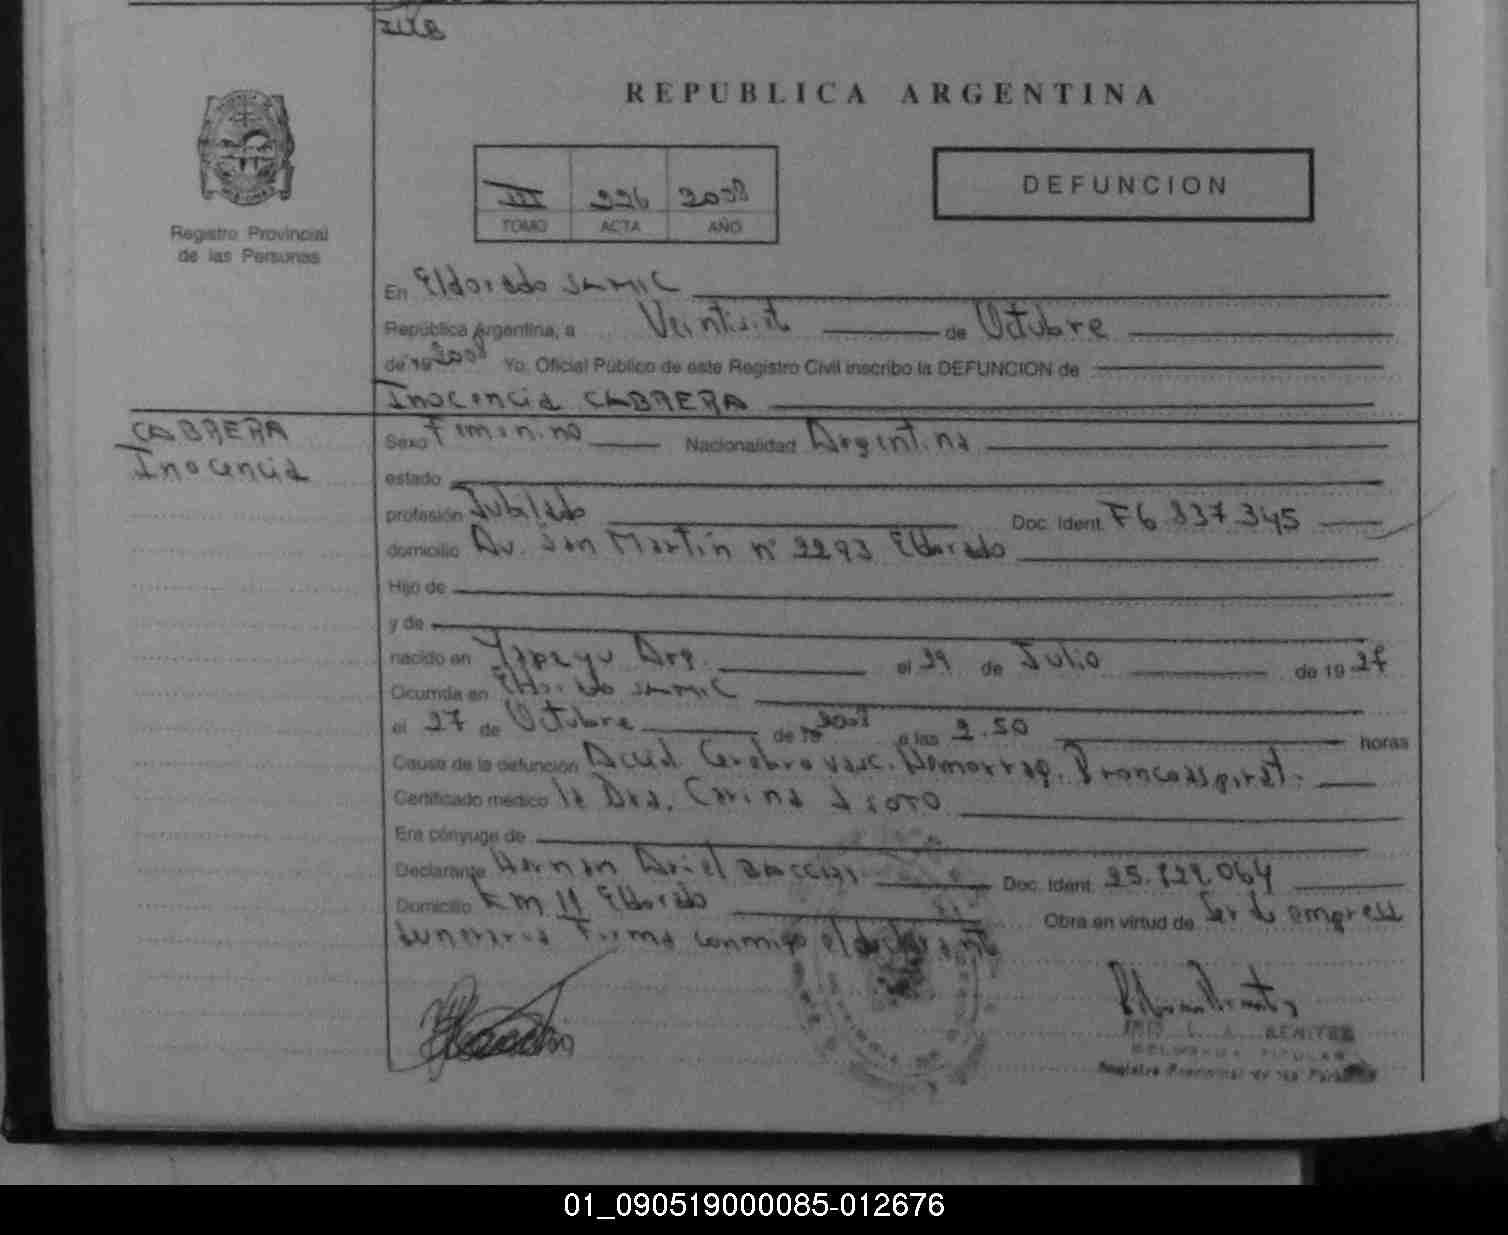 REPUBLICA ARGENTINA
III 226 2008
TOMO ACTA AÑO
DEFUNCION
Registro Provincial
de las Personas
En Eldorado SAMIC
República Argentina, a Veintisiete de Octubre
de 19 2008 Yo, Oficial Público de este Registro Civil inscribo la DEFUNCION de
Inocencia CABRERA
CABRERA
Inocencia
Sexo Femenino Nacionalidad Argentina
estado
profesión Jubilado Doc. Ident. F6.337.345
domicilio Av. San Martín nº 2293 Eldorado
Hijo de
y de
nacido en Yapeyu Arg. el 29 de Julio de 19 27
Ocurrida en Eldorado SAMIC
el 27 de Octubre de 19 2008 a las 2.50 horas
Causa de la defunción Accid. Cerebro vasc. Hemorrag. Broncoaspirat.
Certificado médico la Dra. Carina
Era cónyuge de
Declarante Hernan Ariel Doc. Ident. 25.
Domicilio Km 11 Eldorado Obra en virtud de Ser de empresa
funeraria Firma conmigo el declarante
BENITEZ
Registro Provincial de las Personas
01_090519000085-012676